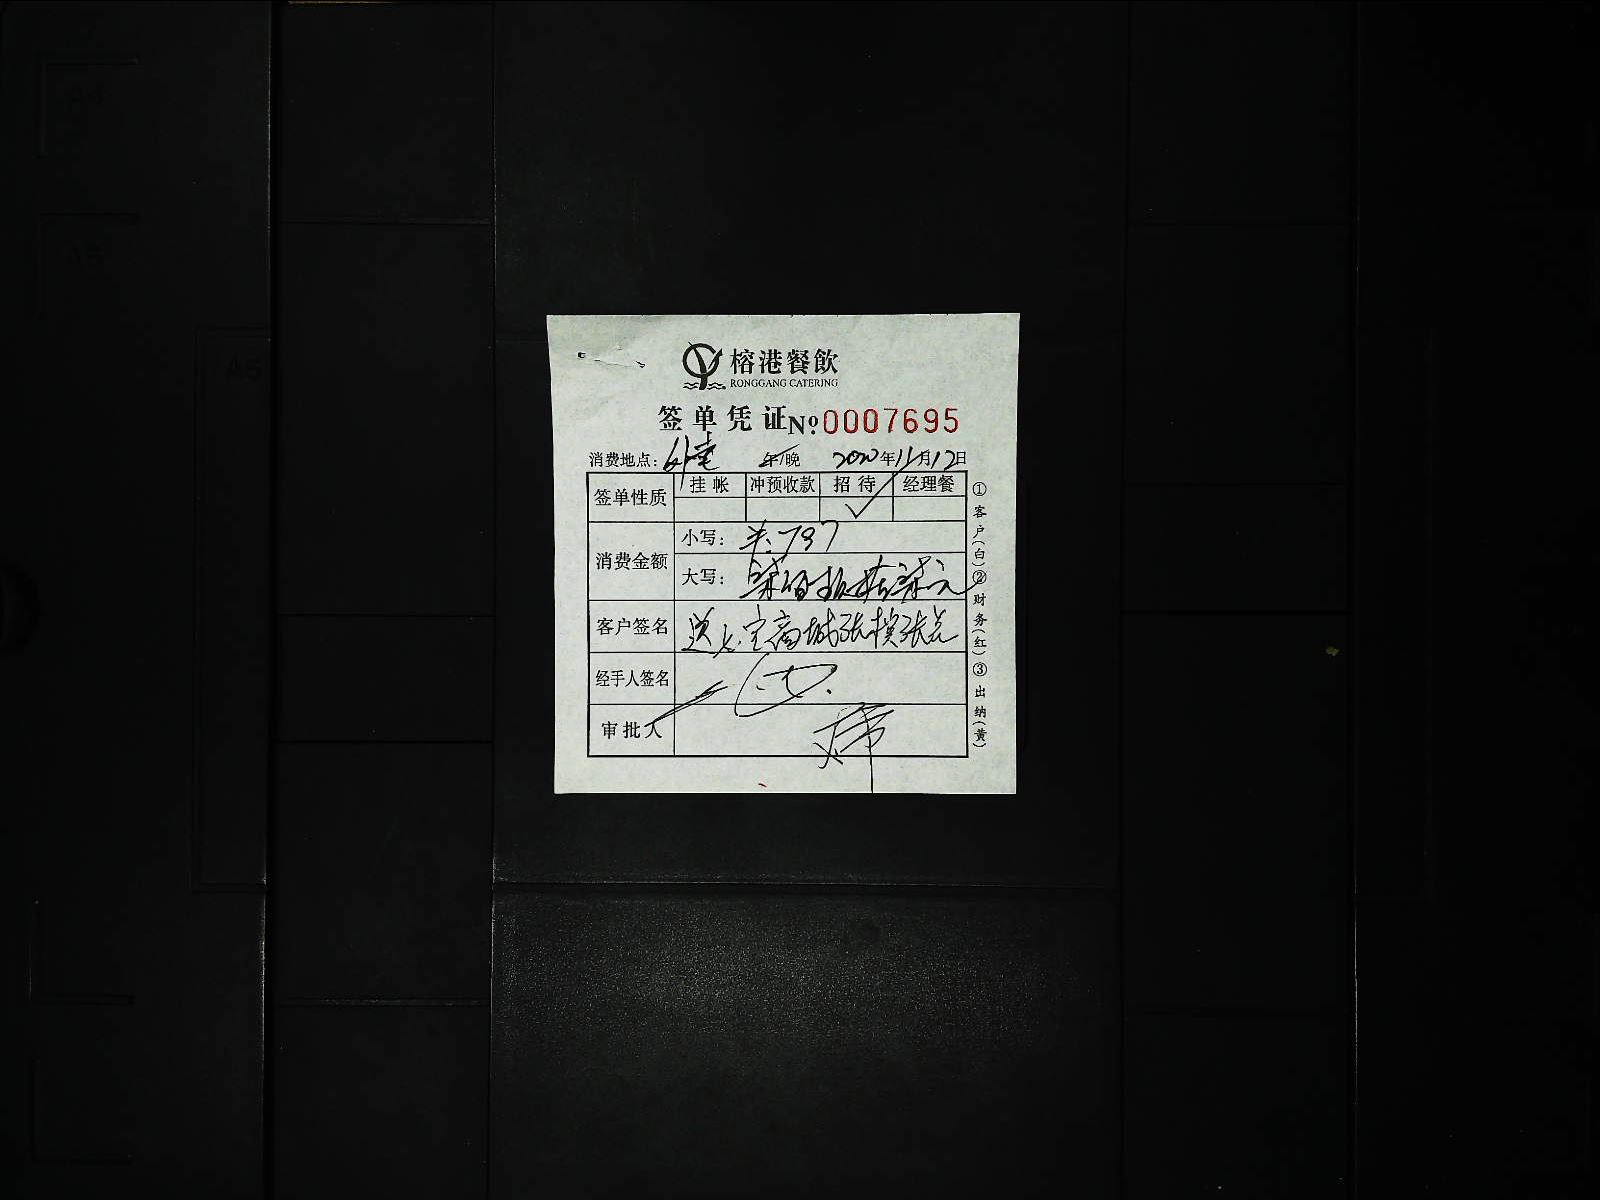 榕港餐飲
RONGGANG CATERING
签单凭证 No 0007695
消费地点: 外卖 午/晚 2020年11月12日
签单性质 挂帐 冲预收款 招待 经理餐
✓
消费金额 小写: ¥:797
大写: 柒佰 柒元
客户签名 送 宝商城张 张总
经手人签名
审批人
①客户(白)②财务(红)③出纳(黄)
A5
A5